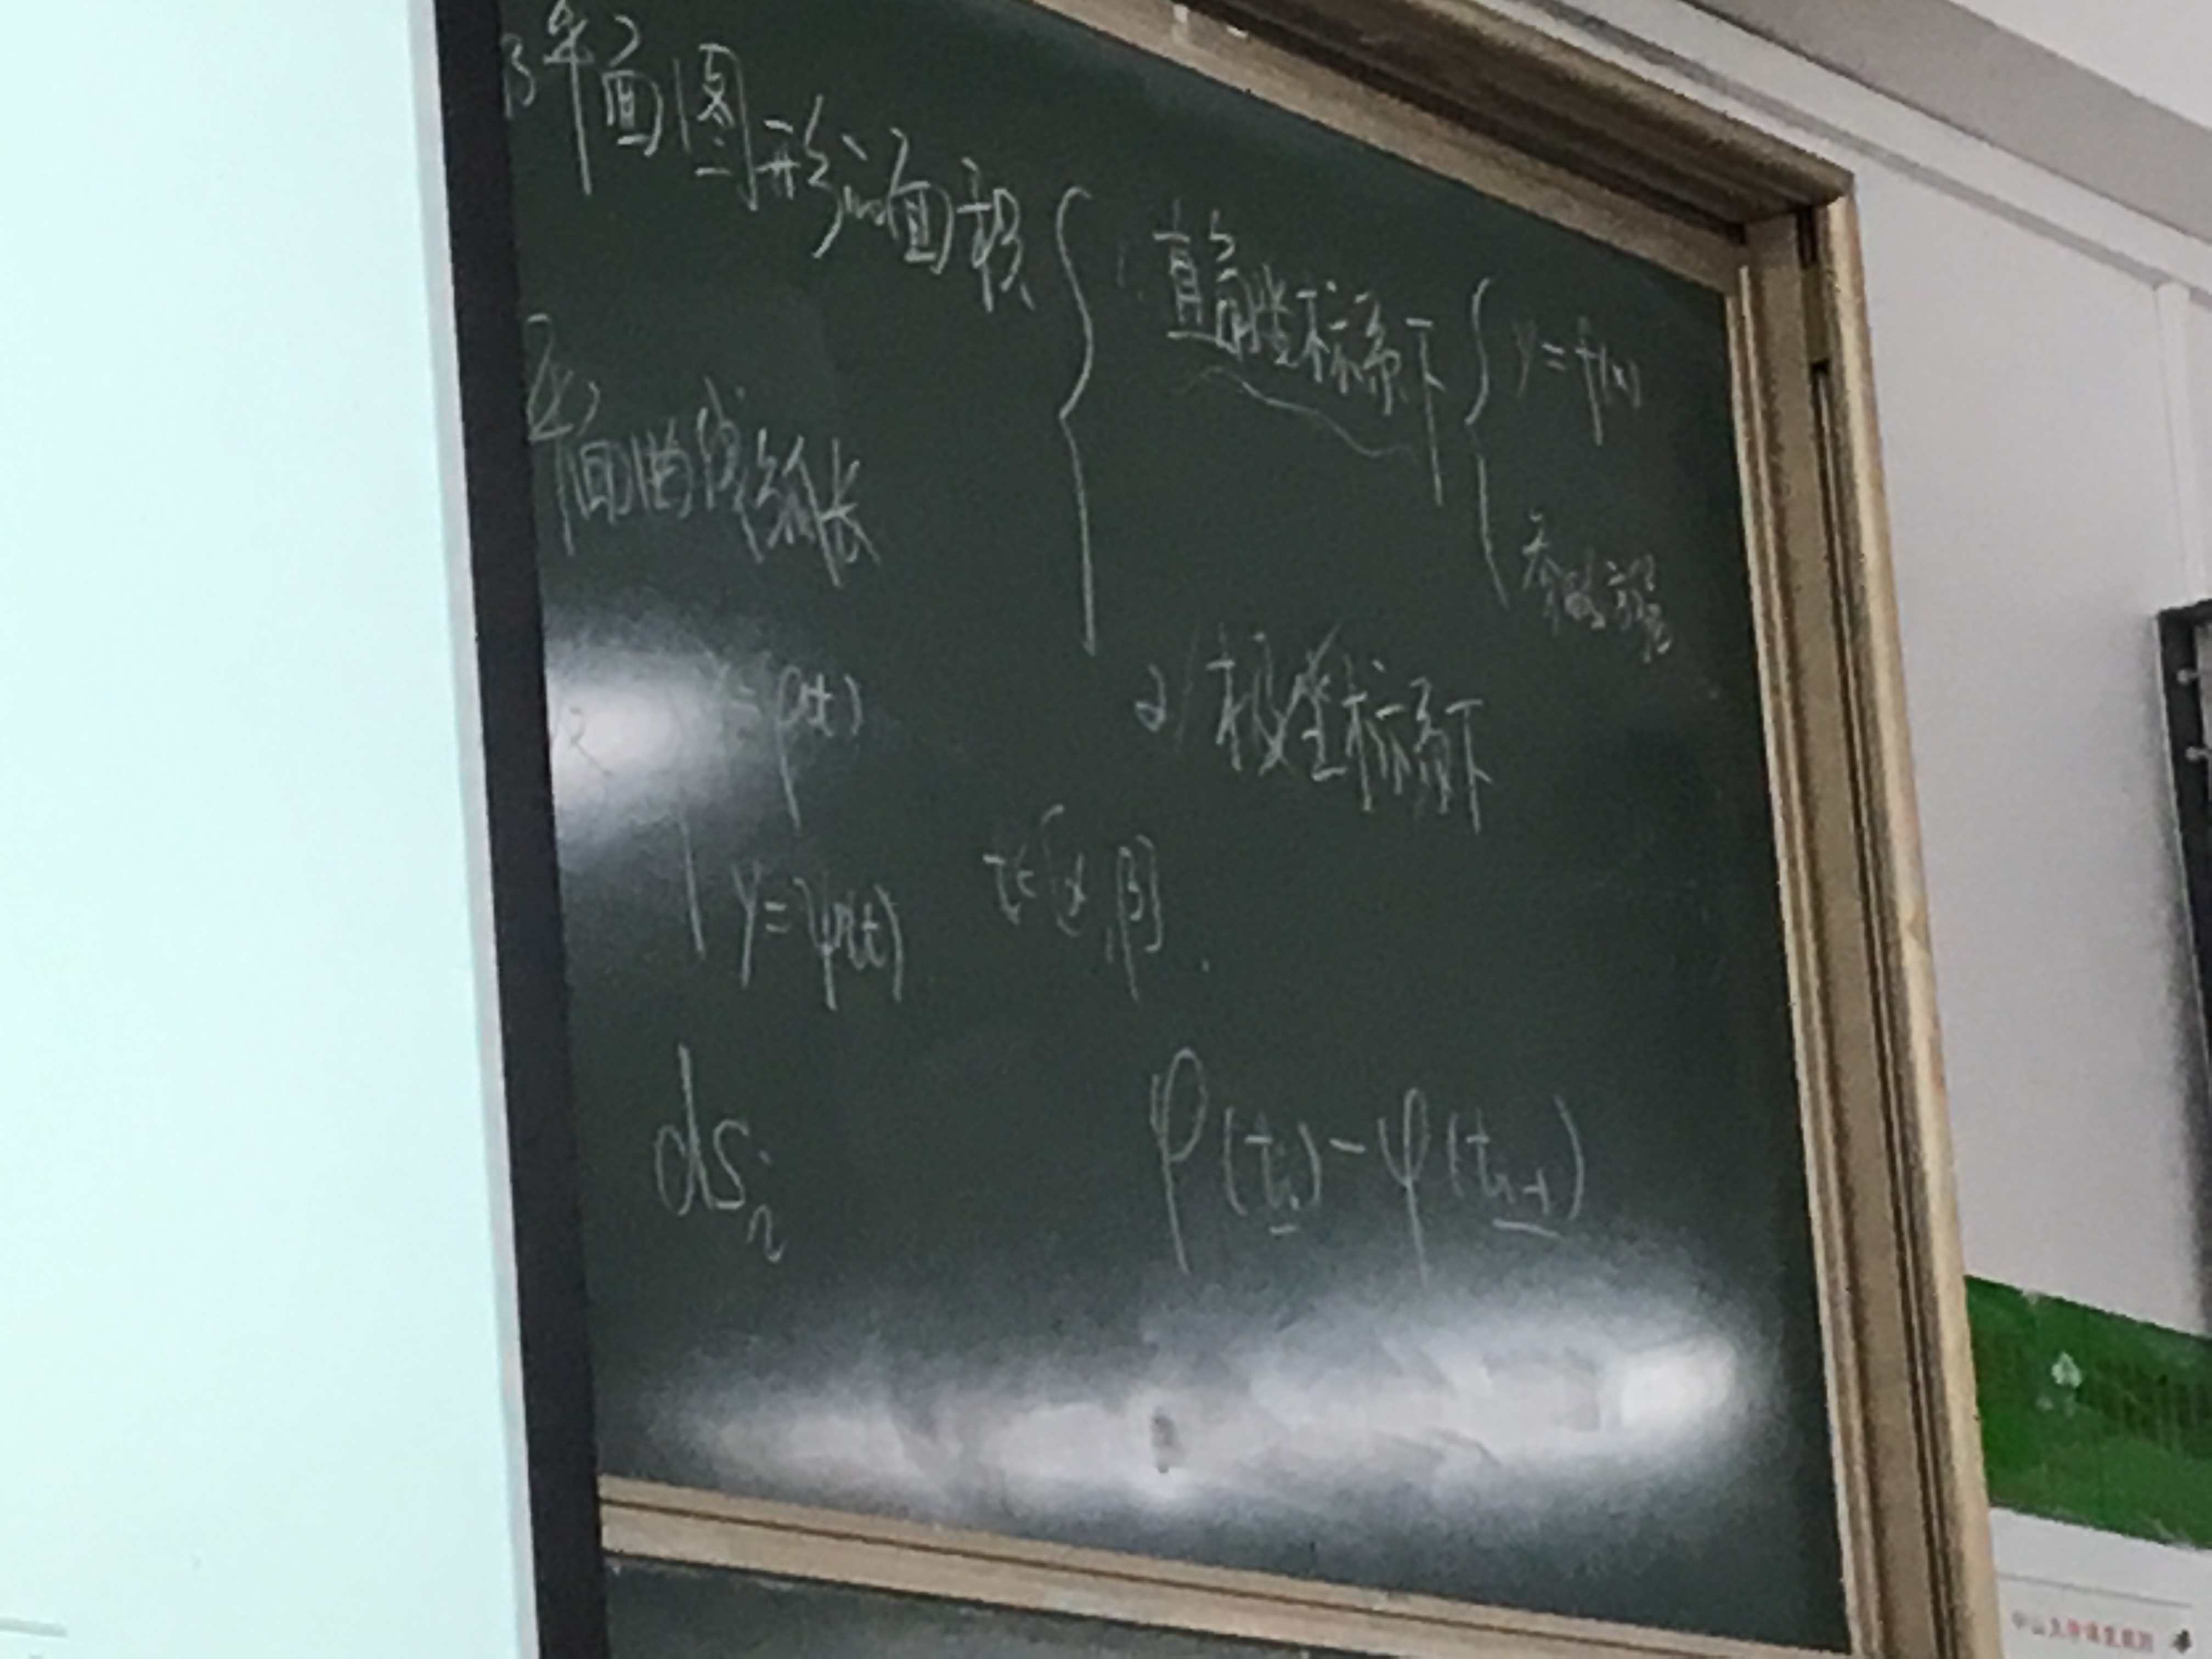 平面图形的面积
1) 直角坐标系下
y=f(x)
参数方程
2) 极坐标系下
平面曲线弧长
x=φ(t)
y=ψ(t) t∈[α,β]
dsᵢ φ(tᵢ)-φ(tᵢ₋₁)